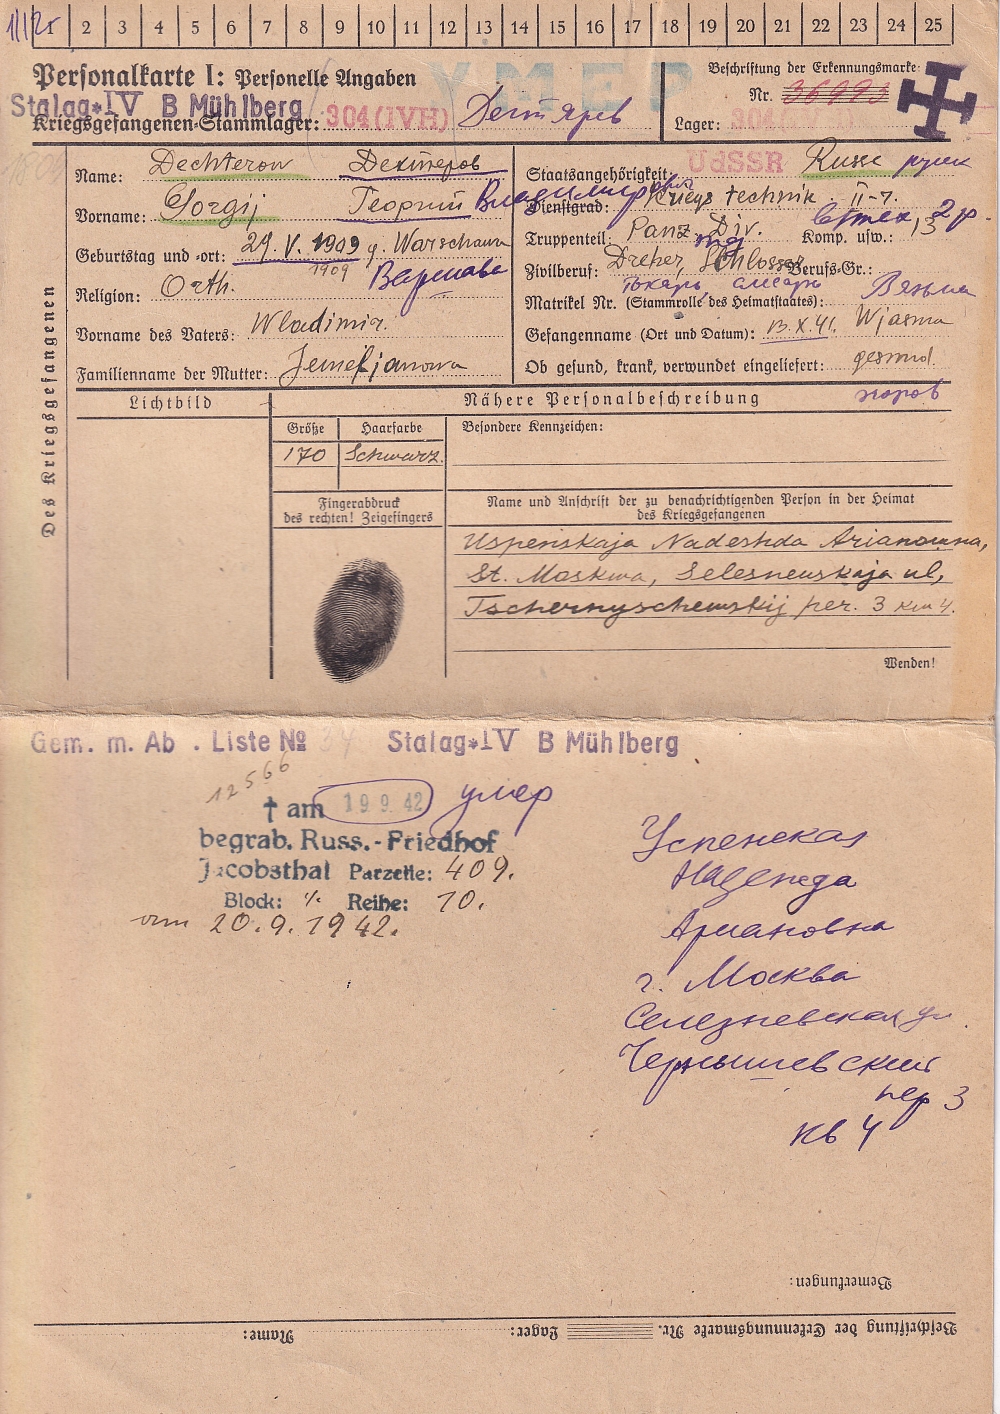 1 2 3 4 5 6 7 8 9 10 11 12 13 14 15 16 17 18 19 20 21 22 23 24 25
Personalkarte I: Personelle Angaben
УМЕР
Beschriftung der Erkennungsmarke
Stalag IV B Mühlberg
Nr. 36993
Kriegsgefangenen-Stammlager: 304 (IV H) Дегтярев
Lager: 304
Des Kriegsgefangenen
Name: Dechterow Дехтерев
Vorname: Gorgij Георгий Владимирович
Geburtstag und -ort: 29. V. 1909 g. Warschawa
1909 Варшава
Religion: Orth.
Vorname des Vaters: Wladimir.
Familienname der Mutter: Jemeljanowa
Staatsangehörigkeit: UdSSR Russe русск
Dienstgrad: Kriegstechnik II-r.
Truppenteil: Panz. Div. Komp. usw.: 13
Zivilberuf: Dreher, Schlosser Berufs-Gr.:
токарь, слесарь
Matrikel Nr. (Stammrolle des Heimatstaates): Вязьма
Gefangenname (Ort und Datum): 13. X. 41. Wjasma
Ob gesund, krank, verwundet eingeliefert: gesund.
Lichtbild
Nähere Personalbeschreibung
Größe Haarfarbe Besondere Kennzeichen:
170 Schwarz.
Fingerabdruck
des rechten! Zeigefingers
Name und Anschrift der zu benachrichtigenden Person in der Heimat
des Kriegsgefangenen
Uspenskaja Nadeshda Arianowna,
St. Moskwa, Selesnewskaja ul,
Tschernyschewskij per. 3 kw 4.
Wenden!
Gem. m. Ab . Liste No 34 Stalag IV B Mühlberg
12566
† am 19 9. 42 умер
begrab. Russ.-Friedhof
Jacobsthal Parzelle: 409.
Block: ./. Reihe: 10.
am 20.9.1942.
Успенская
Надежда
Ариановна
г. Москва
Селезневская ул.
Чернышевский
пер 3
кв 4
Bemerkungen:
Beschriftung der Erkennungsmarke Nr. Lager: Name: